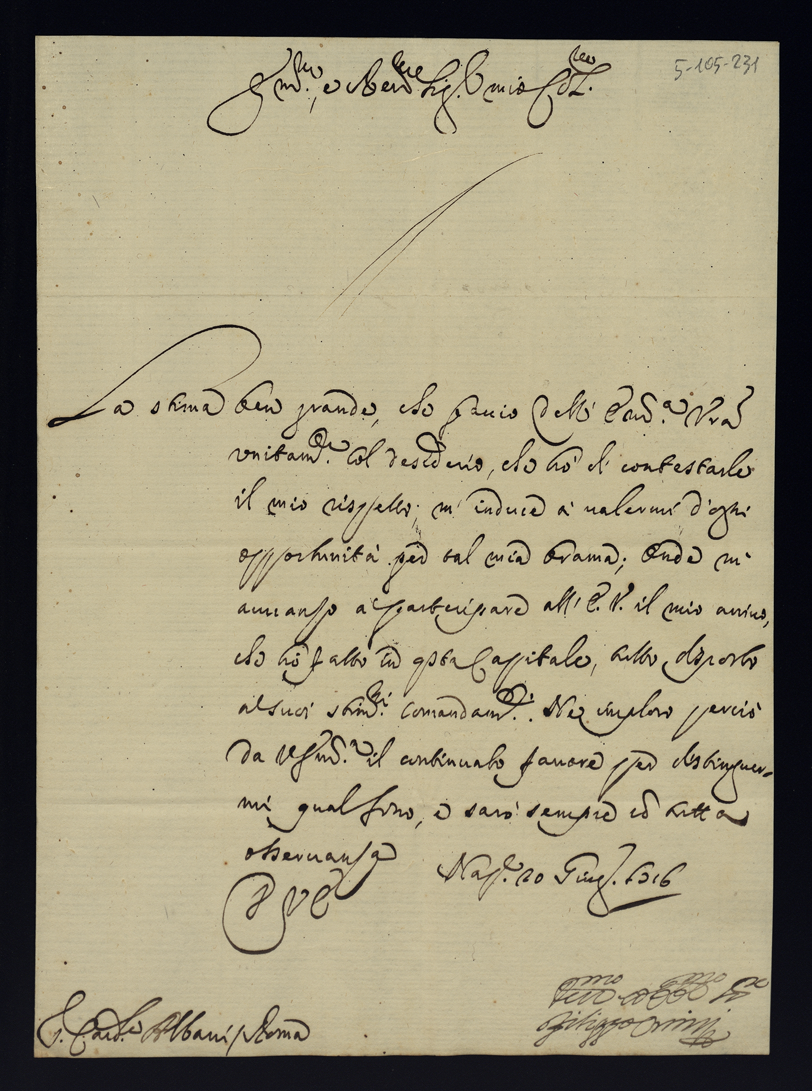 5-105-231
Em.mo, e Rev.mo Sig.re mio Col.mo
La stima ben grande, che faccio dell' Em.a V'ra
unitam.te col desiderio, che hò di contestarle
il mio rispetto, m' induce à valermi d'ogni
opportunità per tal mia brama; Onde m'
auuanso à participare all' E. V. il mio arriuo,
che hò fatto in q'sta Capitale, tutto disposto
al suoi stim.mi Comandam.ti. Ne imploro perciò
da V. Em.a il continuato fauore per distinguer-
mi qual sono, e sarò sempre co' tutta
osseruansa
Nap. 20 Giug.
P V E
S.r Card.le Albani / Roma
Filippo